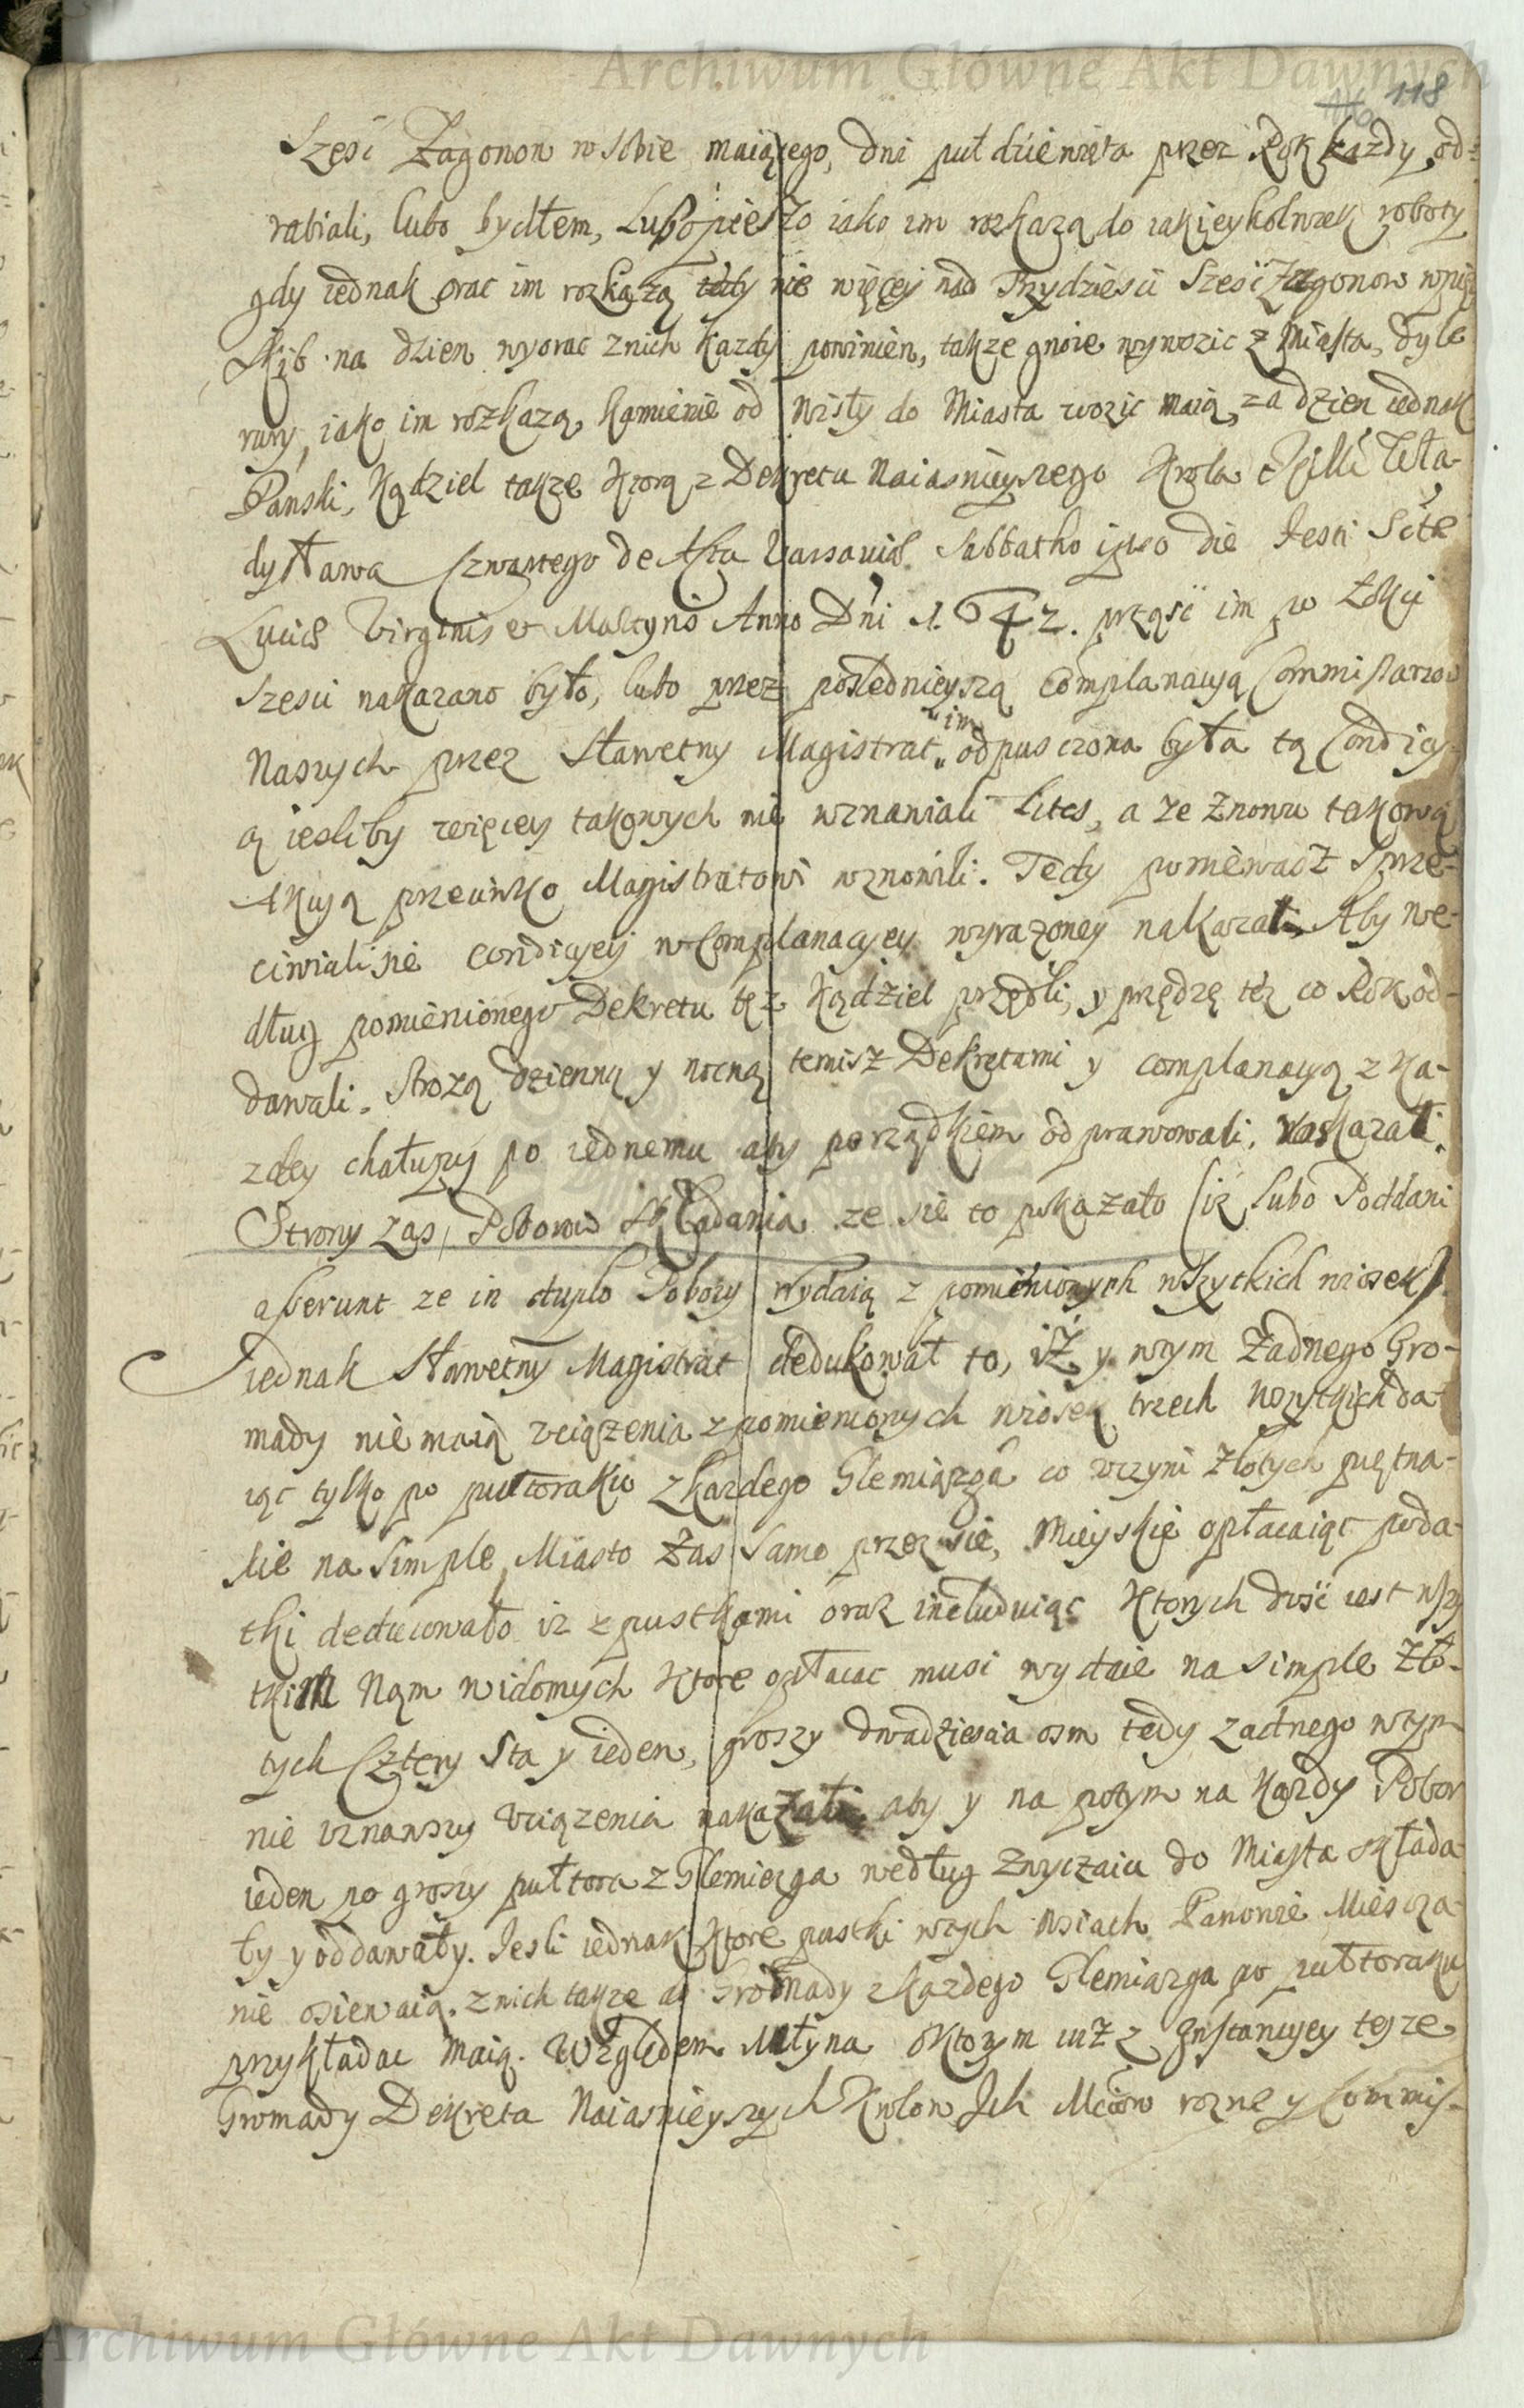 Archiwum Główne Akt Dawnych
118
Szesć Zagonow w sobie maiącego, dni puł dziewięta przez Rok kazdy od=
rabiali, lubo bydłem, Lubo pieszo iako im rozkazą do iakieykolwiek roboty
gdy iednak orac im rozkązą tedy nie więcej nad Trzydziesci Szesć Zagonow wpięc
Skib na dzien wyorac znich kazdy powinien, takze gnoie wywozic z Miasta, dyle
rury, iako im rozkazą, kamienie od Wisły do Miasta wozic maią, za dzien iednak
Panski, Kądziel takze ktorą z Dekretu Naiasnieyszego Krola Jmci Wła-
dysława Czwartego de Acta Varsaviæ Sabbatho ipso die Festi Sctæ
Luciæ Virginis et Martyris Anno Dni 1642. prząsć im po Łokci
Szesci nakazano było, lubo przez poslednieyszą complanacyą Commissarzow
Naszych przez Sławetny Magistrat im odpuszczona była tą Condicy-
ą iesliby więcey takowych nie wznawiali Lites, a ze znowu takową
Akcyą przeciwko Magistratowi wznowili. Tedy poniewasz sprze-
ciwiali sie condicyey w Complanacyey wyrazoney nakazali, Aby we-
dług pomienionego Dekretu tęz kądziel przędli, y przędzę tez co Rok od-
dawali. Strozą dzienną y nocną temisz Dekretami y complanacyą z ka-
zdey chałupy po iednemu aby porządkiem odprawowali, naskazali.
Strony zas Poborow składania ze sie to pokazało (iz lubo Poddani
asserunt ze in duplo Pobory wydaią z pomienionych wszytkich wiosek)
iednak Sławetny Magistrat dedukował to, iż y wtym zadnego Gro-
mady nie maią vciązenia z pomienionych wiosek trzech wszytkich da-
iąc tylko po pułtoraku z kazdego Slemiązga co vczyni złotych piętna-
scie na simple, Miasto zas samo przez sie, Mieyskie opłacaiąc poda-
tki deducowało iz z pustkami oraz includuiąc ktorych dosć iest wszy
tkim Nąm widomych ktore opłacac musi wydaie na simple zło-
tych Cztery Sta y ieden, groszy dwadziescia osm tedy zadnego wtym
nie vznawszy vciązenia nakazali aby y na potym na kazdy Pobor
ieden po groszy pułtora z Slemięzga według zwyczaiu do Miasta składa-
ły y oddawały. Jesli iednak ktore pustki wtych wsiach Panowie Miescza-
nie osiewaią, znich takze do Gromady z kazdego Slemiązga po pułtoraku
przykładac maią. Względem Młyna o ktorym iuż z Instancyey teyze
Gromady Dekreta Naiasnieyszych Krolow Jch Mciow rozne y Commis-
Archiwum Główne Akt Dawnych